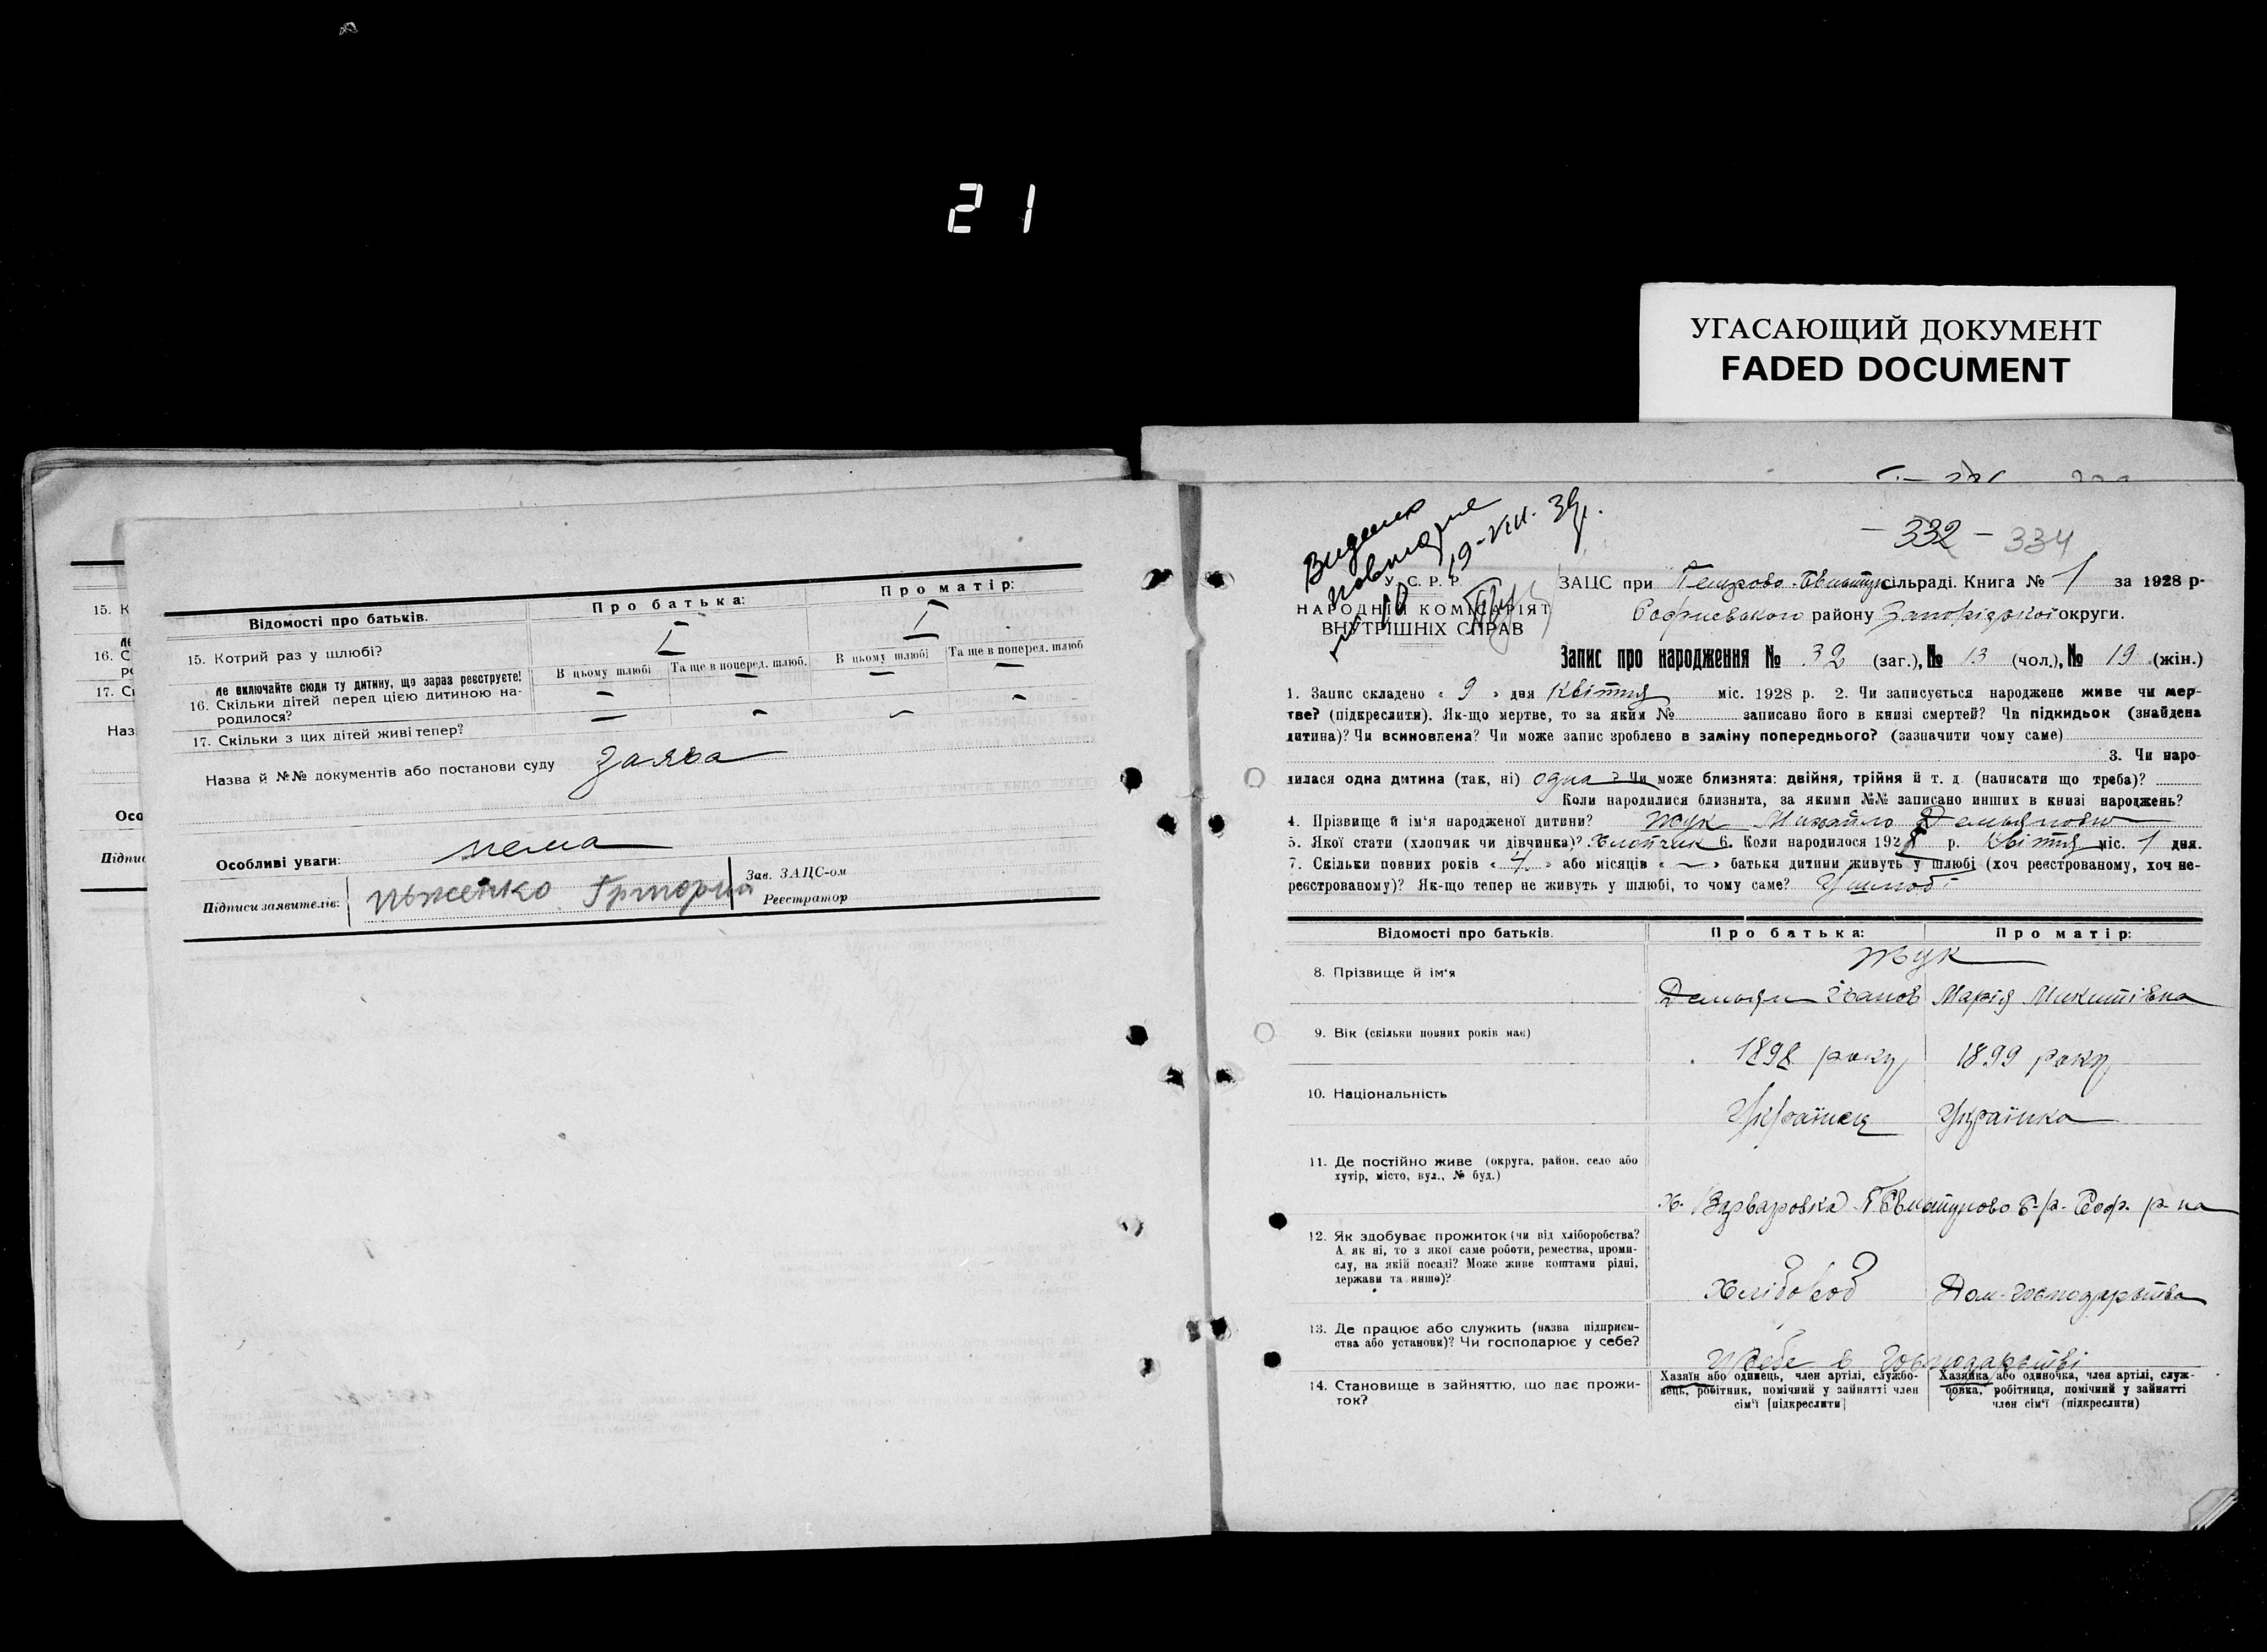 21
УГАСАЮЩИЙ ДОКУМЕНТ
FADED DOCUMENT
15. К
16. С
17. Сі
Наз
Осо
Підпис
Відомості про батьків.
Про батька:
Про матір:
15. Котрий раз у шлюбі?
I
I
Не включайте сюди ту дитину, що зараз реєструєте!
В цьому шлюбі
Та ще в поперед. шлюб.
В цьому шлюбі
Та ще в поперед. шлюб
16. Скільки дітей перед цією дитиною на-
родилося?
— — — —
17. Скільки з цих дітей живі тепер?
— — — —
Назва й №№ документів або постанови суду заява
Особливі уваги: нема
Підписи заявителів:
Зав. ЗАЦС-ом
Реєстратор
— 332 — 334
19-VIII. 39р.
У. С. Р. Р.
НАРОДНІЙ КОМІСАРІЯТ
ВНУТРІШНІХ СПРАВ
ЗАЦС при сільраді. Книга № 1 за 1928 р.
району Запорізької округи.
Запис про народження № 32 (заг.), № 13 (чол.), № 19 (жін.)
1. Запис складено « 9 » дня Квітня міс. 1928 р. 2. Чи записується народжене живе чи мер-
тве? (підкреслити). Як-що мертве, то за яким № записано його в книзі смертей? Чи підкидьок (знайдена
дитина)? Чи всиновлена? Чи може запис зроблено в заміну попереднього? (зазначити чому саме)
3. Чи наро-
дилася одна дитина (так, ні) одна ? Чи може близнята: двійня, трійня й т. д. (написати що треба)?
Коли народилися близнята, за якими №№ записано инших в книзі народжень?
4. Прізвище й ім'я народженої дитини? Жук Михайло
5. Якої стати (хлопчик чи дівчинка)? Хлопчик 6. Коли народилося 1928 р. Квітня міс. 1 дня.
7. Скільки повних років « 4 » або місяців « — » батьки дитини живуть у шлюбі (хоч реєстрованому, хоч не-
реєстрованому)? Як-що тепер не живуть у шлюбі, то чому саме? У шлюбі
Відомості про батьків.
Про батька:
Про матір:
8. Прізвище й ім'я
Жук
Демьян Іванов
Марія Микитівна
9. Вік (скільки повних років має)
1898 року
1899 року
10. Національність
Українец
Українка
11. Де постійно живе (округа, район, село або
хутір, місто, вул., № буд.)
х. Варваровка
12. Як здобуває прожиток (чи від хліборобства?
А як ні, то з якої саме роботи, ремества, проми-
слу, на якій посаді? Може живе коштами рідні,
держави та инше)?
Хлібороб
Дом-господарства
13. Де працює або служить (назва підприєм-
ства або установи)? Чи господарює у себе?
У себе в господарстві
14. Становище в зайняттю, що дає прожи-
ток?
Хазяїн або одинець, член артілі, службо-
вець, робітник, помічний у зайнятті член
сім'ї (підкреслити)
Хазяйка або одиночка, член артілі, служ-
бовка, робітниця, помічний у зайнятті
член сім'ї (підкреслити)